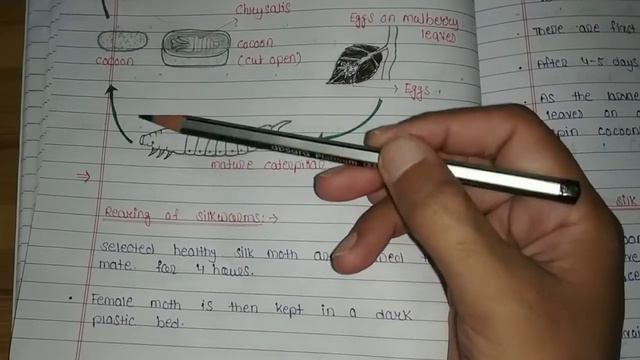 Chrysalis
Eggs on mulberry
leaves
cocoon
cocoon
(cut open)
Eggs
absara Platinum
mature caterpil
Rearing of silkworms:→
selected healthy silk moth are
mate for 4 hours.
• Female moth is then kept in a dark
plastic bed.
There are first
• After 4-5 days
• As the
leaves on
cocoon
silk